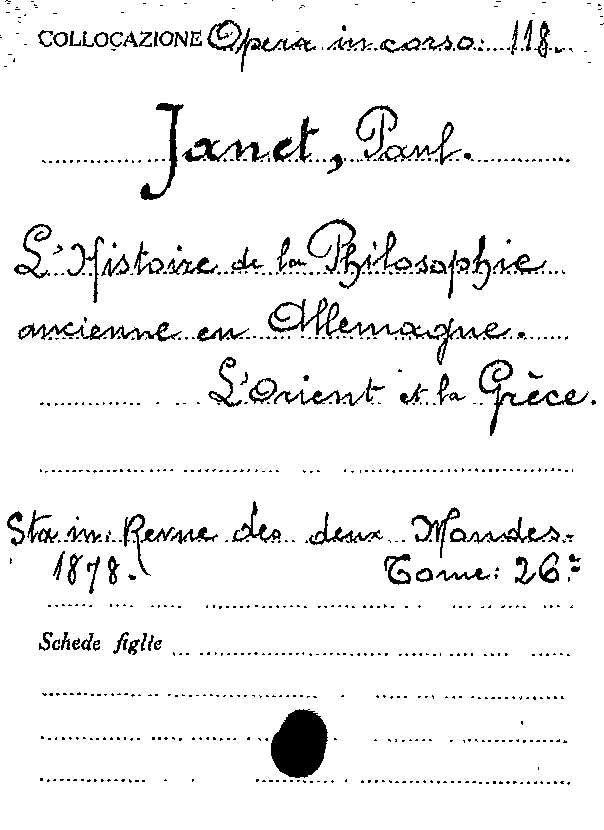 COLLOCAZIONE Opera in corso: 118.
Janet, Paul.
L'Histoire de la Philosophie
ancienne en Allemagne.
L'Orient et la Grèce.
Sta in: Revue des deux Mondes.
1878. Tome: 26º
Schede figlie